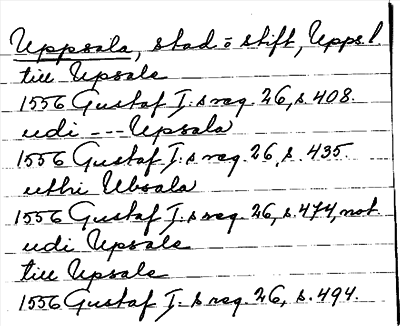 Uppsala, stad o stift, Upps l.
till Upsale
1556 Gustaf I:s reg. 26, s. 408.
udi --- Upsala
1556 Gustaf I:s reg. 26, s. 435.
uthi Ubsala
1556 Gustaf I:s reg. 26, s. 474, not.
udi Upsale
till Upsale
1556 Gustaf I:s reg. 26, s. 494.